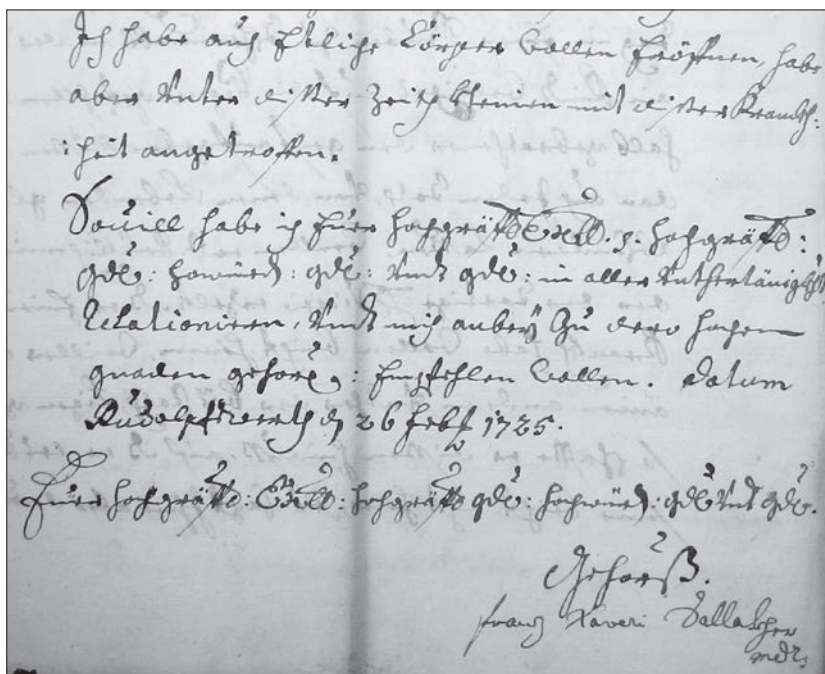 Ich habe auch Etliche Cörper wollen Eröffnen, habe
aber Unter disser Zeith kheinen mit disser Krankh:
:heit angetroffen.
Souill habe ich Euer hochgräffl: Excell: s: hochgräffl:
gdl: hochwürd: gdl: Undt gdl: in aller Unthertänigkheit
Relationiren, Undt mich anbey Zu dero hochen
gnaden gehors: Empfehlen wollen. Datum
Rudolpfswerth d 26 Feb: 1725.
Euer hochgräffl: Excell: hochgräffl gdl: hochwürd: gdl: Undt gdl:
Gehorss.
Franz Xaveri